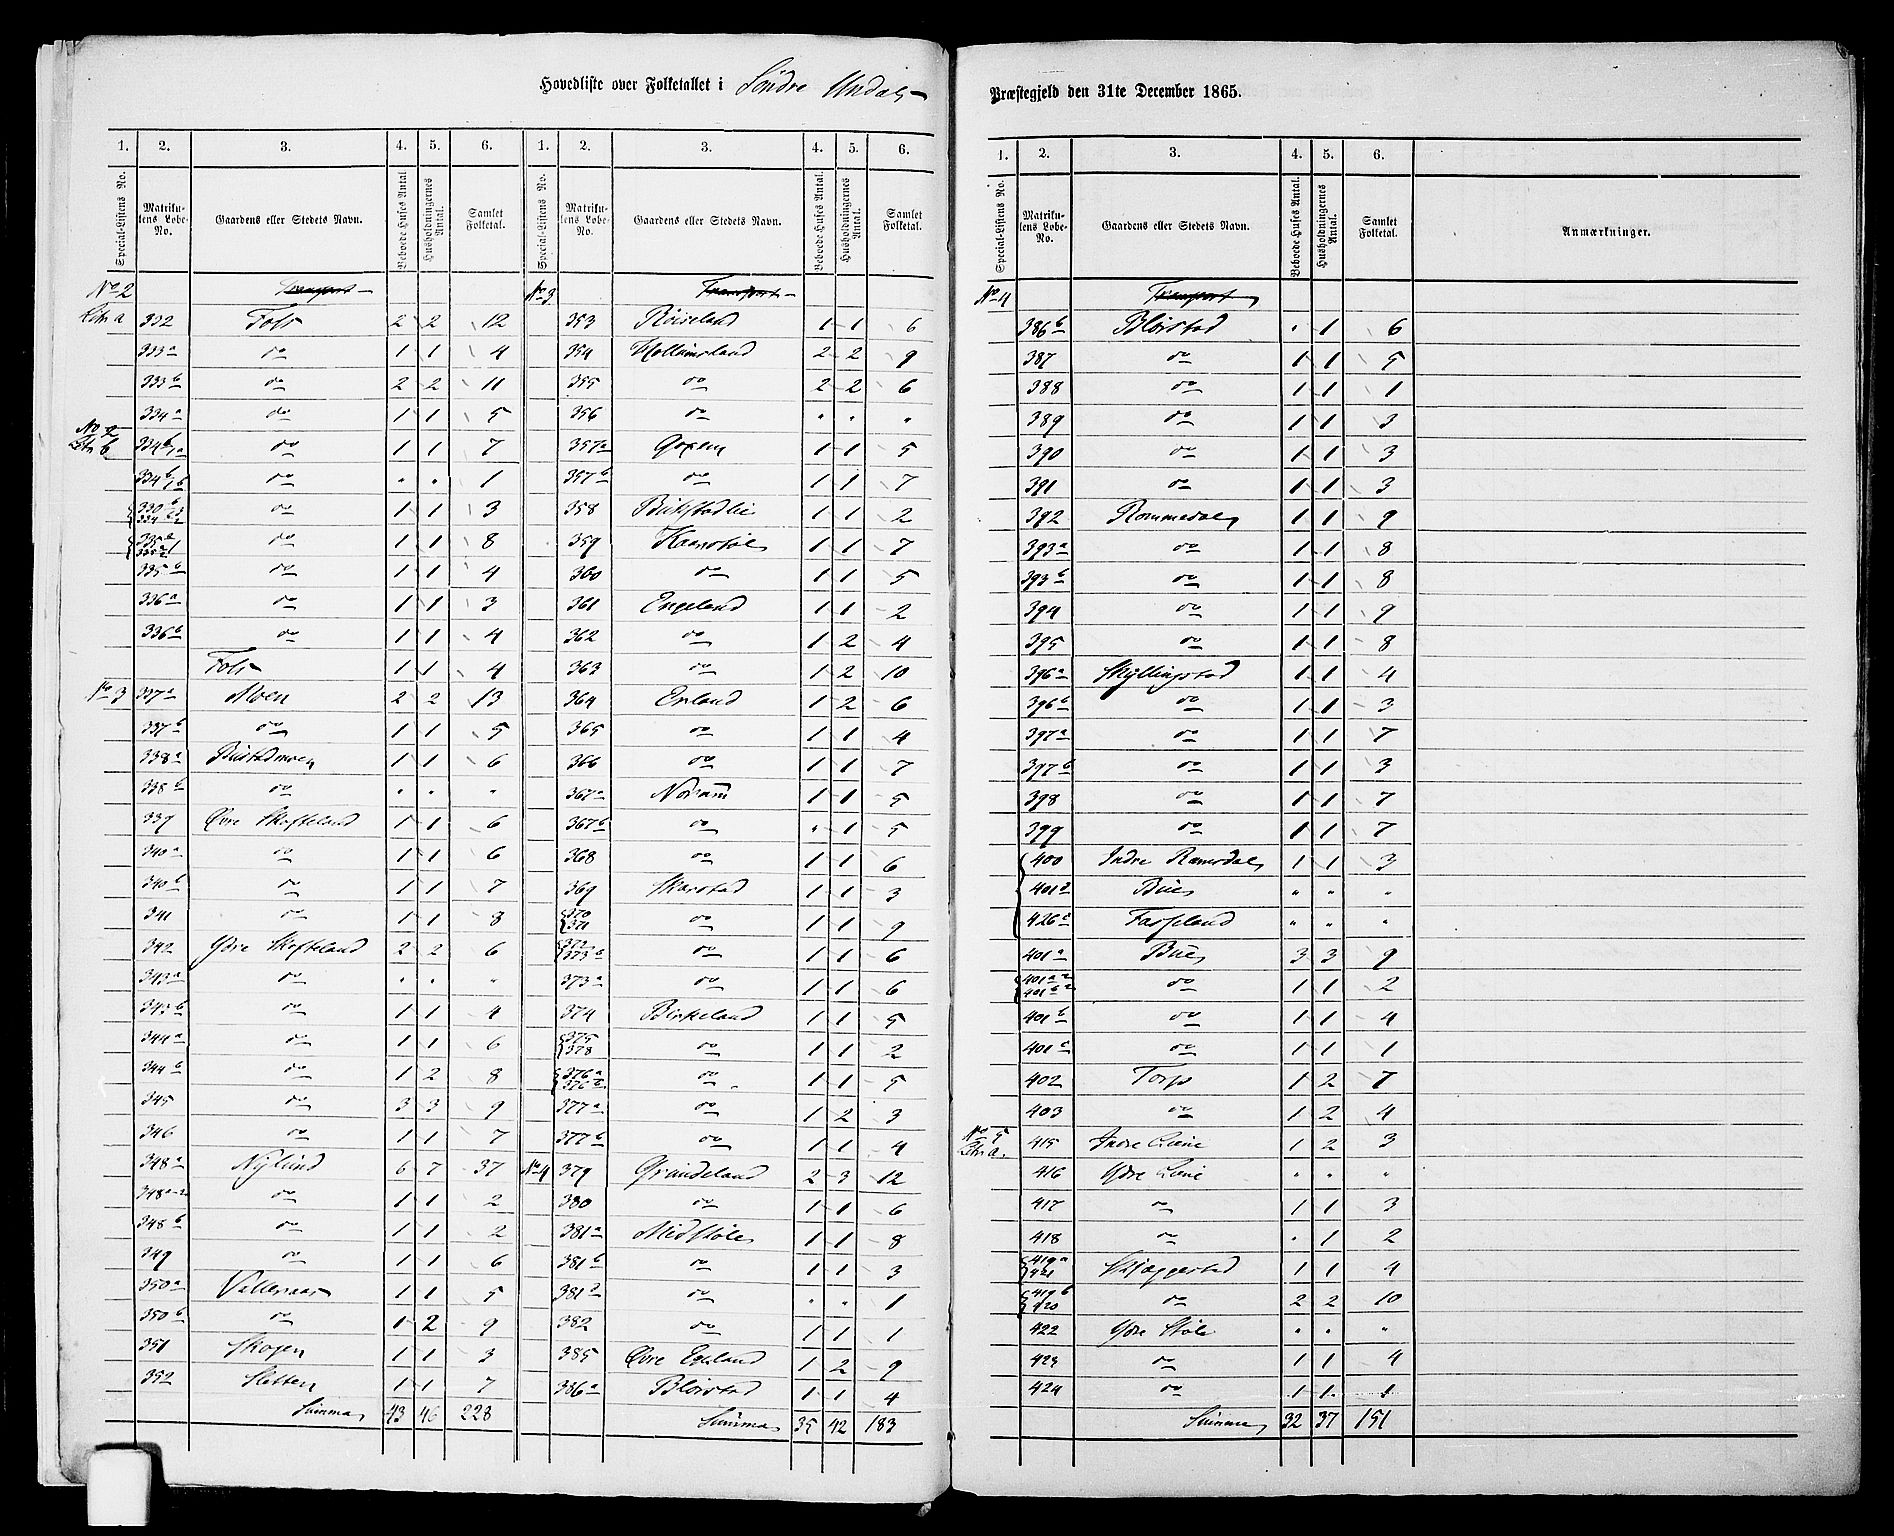 Hovedliste over Folketallet i Söndre Undals
Præstegjeld den 31te December 1865.
1. 2. 3. 4. 5. 6.
Special-Listens No. Matrikulens Løbe-No. Gaardens eller Stedets Navn. Beboede Huses Antal. Husholdningernes Antal. Samlet Folketal.
No 2 Transport
Litr a 332 Foss 2 2 12
333a do 1 1 4
333b do 2 2 11
334a do 1 1 5
No 2 Litr b 334b1a do 1 1 7
334b1b do " " 1
do 1 1 3
do 1 1 8
335b do 1 1 4
336a do 1 1 3
336b do 1 1 4
Foss 1 1 4
No 3 337a Moen 2 2 13
337b do 1 1 5
338a Bustadmoen 1 1 6
338b do " " "
339 Øvre Skofteland 1 1 6
340a do 1 1 6
340b do 1 1 7
341 do 1 1 8
342 Ydre Skofteland 2 2 6
343a do " " "
343b do 1 1 4
344a do 1 1 6
344b do 1 2 8
345 do 3 3 9
346 do 1 1 7
348a Nylund 6 7 37
348a2 do 1 1 2
348b do 1 1 2
349 do 1 1 6
350a Valleraas 1 1 5
350b do 1 2 9
351 Skogen 1 1 3
352 Sletten 1 1 7
Summa 43 46 228
1. 2. 3. 4. 5. 6.
Special-Listens No. Matrikulens Løbe-No. Gaardens eller Stedets Navn. Beboede Huses Antal. Husholdningernes Antal. Samlet Folketal.
No 3 Transport
353 Röiseland 1 1 6
354 Hollumsland 2 2 9
355 do 2 2 6
356 do " " "
357a 1 1 5
357b do 1 1 7
358 1 1 2
359 1 1 7
360 do 1 1 5
361 Engeland 1 1 2
362 do 1 2 4
363 do 1 2 10
364 1 2 6
365 do 1 1 4
366 do 1 1 7
367a 1 1 5
367b do " 1 5
368 do 1 1 6
369 Skarstad 1 1 3
370 371 do 1 1 9
372 373b do 1 1 6
373a do 1 1 6
374 Birkeland 1 1 5
375 378 do 1 1 2
376a 376b do 1 1 5
377a do 1 2 3
377b do 1 1 4
No 4 379 Grundeland 2 3 12
380 do 1 1 6
381a Midstöle 1 1 8
381b do 1 1 3
381 2 do " " 1
382 do 1 1 1
385 Øvre Egeland 1 2 9
386a Blörstad 1 1 4
Summa 35 42 183
1. 2. 3. 4. 5. 6.
Special-Listens No. Matrikulens Løbe-No. Gaardens eller Stedets Navn. Beboede Huses Antal. Husholdningernes Antal. Samlet Folketal. Anmærkninger.
No 4 Transport
386b Blörstad " 1 6
387 do 1 1 5
388 do 1 1 1
389 do 1 1 3
390 do 1 1 3
391 do 1 1 3
392 Rommedal 1 1 9
393a do 1 1 8
393b do 1 1 8
394 do 1 1 9
395 do 1 1 8
396a Skyllingstad 1 1 4
396b do 1 1 3
397a do 1 1 7
397b do 1 1 3
398 do 1 1 7
399 do 1 1 7
400 Indre Ramsdal 1 1 3
401 2 Bue " " "
426 Fasseland " " "
401a Bue 3 3 9
401a2 401b2 do 1 1 2
401b do 1 1 4
401c do 1 1 1
402 Torp 1 2 7
403 do 1 2 4
No 5 Litr a. 415 Indre Lene 1 2 3
416 Ydre Lene " " "
417 do 1 1 3
418 do " 1 2
419a 421 Skjæggestad 1 1 4
419b 420 do 2 2 10
422 Ydre Stöle " " "
423 do 1 1 4
424 do 1 1 1
Summa 32 37 151